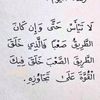 لَا تَيْأَسْ حَتَّى وَإِنْ كَانَ
الطَّرِيقُ صَعْبًا فَالَّذِي خَلَقَ
الطَّرِيقَ الصَّعْبَ خَلَقَ فِيكَ
الْقُوَّةَ عَلَى تَجَاوُزِهِ.